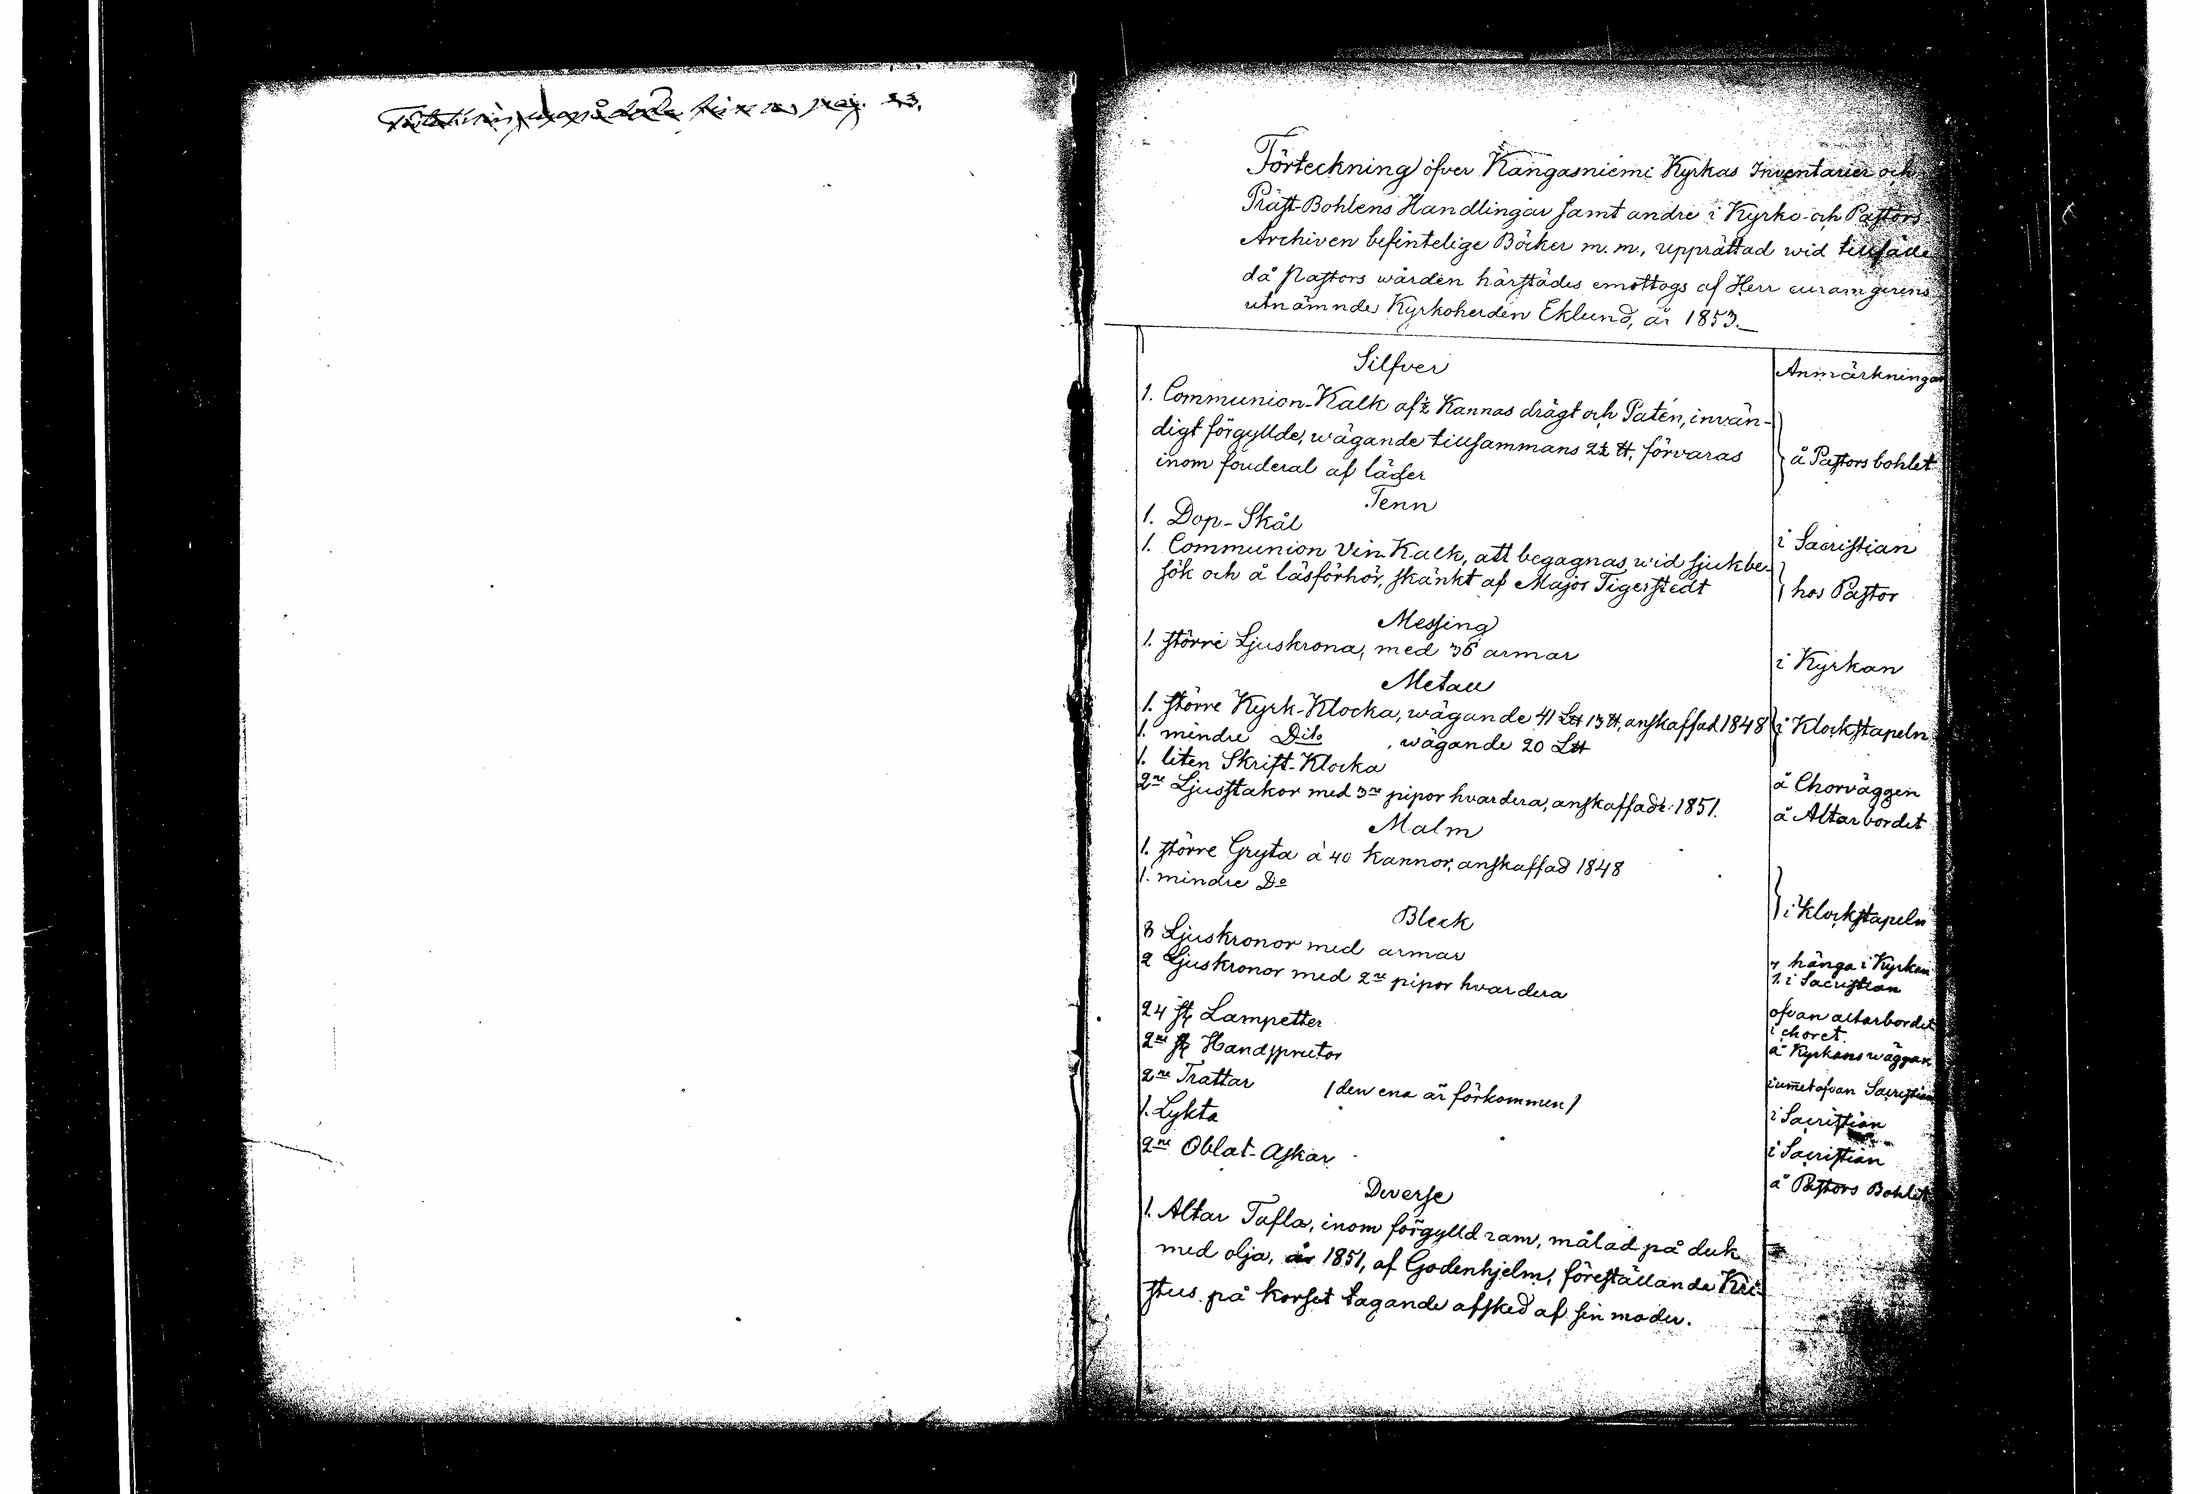 pag. 23.
Förteckning öfver Kangasniemi Kyrkas Inventarier och
Präst-Bohlens Handlingar samt andre i Kyrko- och Pastors
Archiven befintelige Böcker m. m., upprättad wid tillfälle
då Pastors wården härstädes emottogs af Herr curam gerens
utnämnde Kyrkoherden Eklund, år 1853.
Silfver
Anmärkningar
1. Communion-Kalk af ½ Kannas drägt och Patén, invän-
digt förgyllde, wägande tillsammans 2½ ℔, förvaras
inom fouderal af läder
å Pastorsbohlet
Tenn
1. Dop-Skål
i Sacristian
1. Communion Vin-Kalk, att begagnas wid sjukbe-
sök och å läsförhör, skänkt af Major Tigerstedt
hos Pastor
Messing
1. större Ljuskrona, med 36 armar
i Kyrkan
Metall
1. större Kyrk-Klocka, wägande 41 L℔ 13 ℔, anskaffad 1848
1. mindre Dito, wägande 20 L℔
i Klockstapeln
1. liten Skrift-Klocka
å Chorväggen
2ne Ljusstakor med 3ne pipor hvardera, anskaffade 1851.
å Altarbordet
Malm
1. större Gryta à 40 kannor, anskaffad 1848
1. mindre Do
i Klockstapeln
Bleck
8 Ljuskronor med armar
7 hänga i Kyrkan
1. i Sacristian
2 Ljuskronor med 2ne pipor hvardera
ofvan altarbordet
i choret.
24 st Lampetter
å Kyrkans wäggar
2ne st Handsprutor
ofvan Sacristian
2ne Trattar /den ena är förkommen/
i Sacristian
1. Lykta
i Sacristian
2ne Oblat-Askar
å Pastors Bohlet
Diverse
1. Altar Tafla, inom förgylld ram, målad på duk
med olja, år 1851, af Godenhjelm, föreställande Kri-
stus på korset tagande afsked af sin moder.